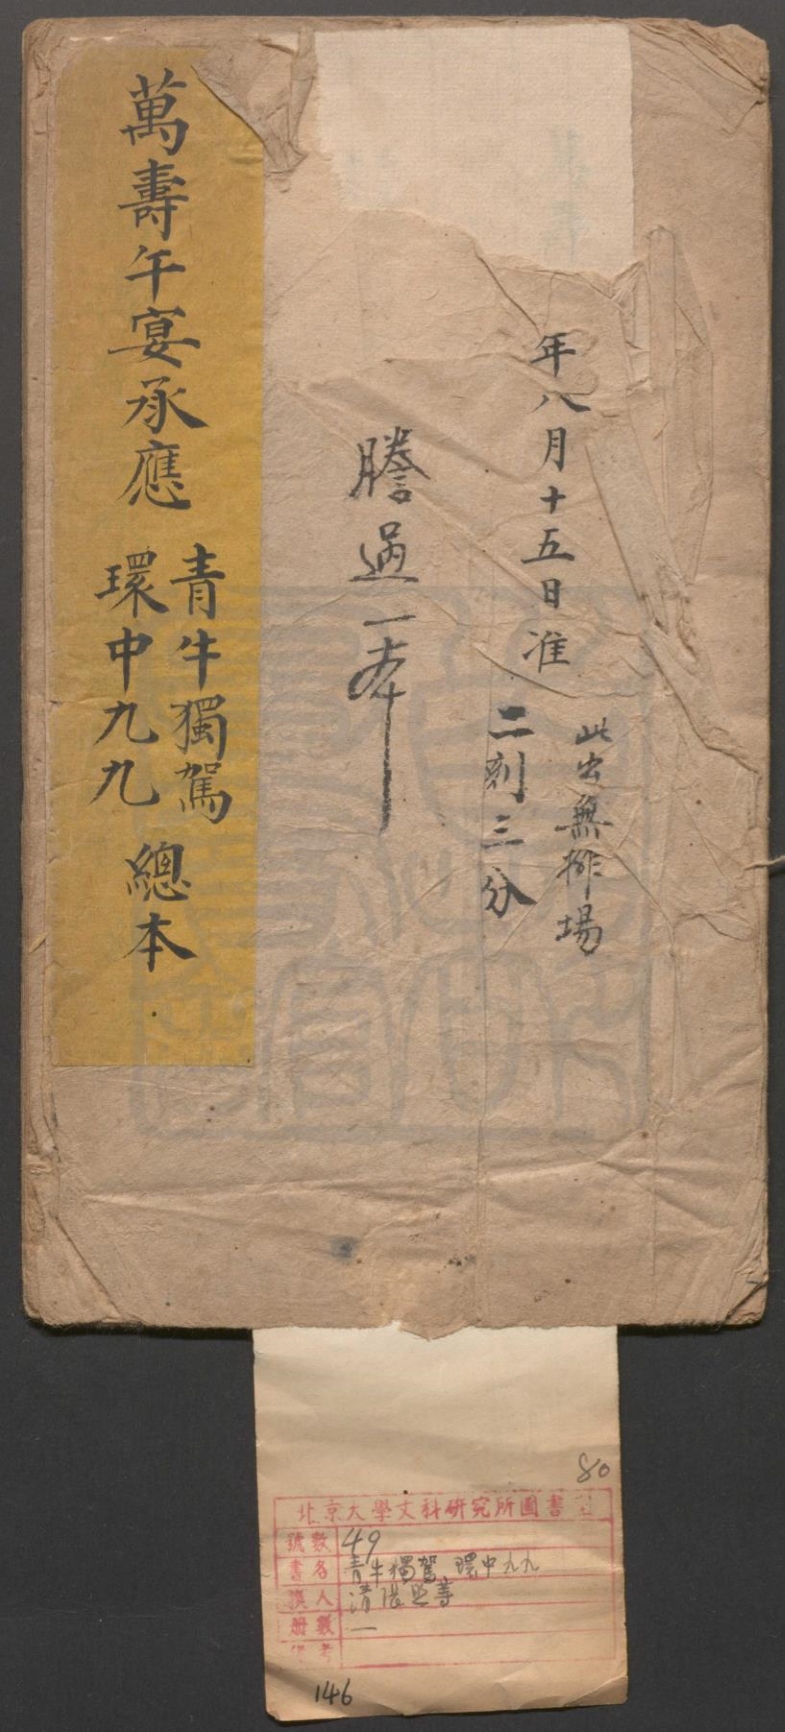 年八月十五日准
此出無排場
二刻三分
謄過一本
萬壽午宴承應
青牛獨駕
環中九九
總本
80
北京大學文科研究所圖書
號數 49
書名 青牛獨駕、環中九九
撰人 清張照等
册數 一
備考
146